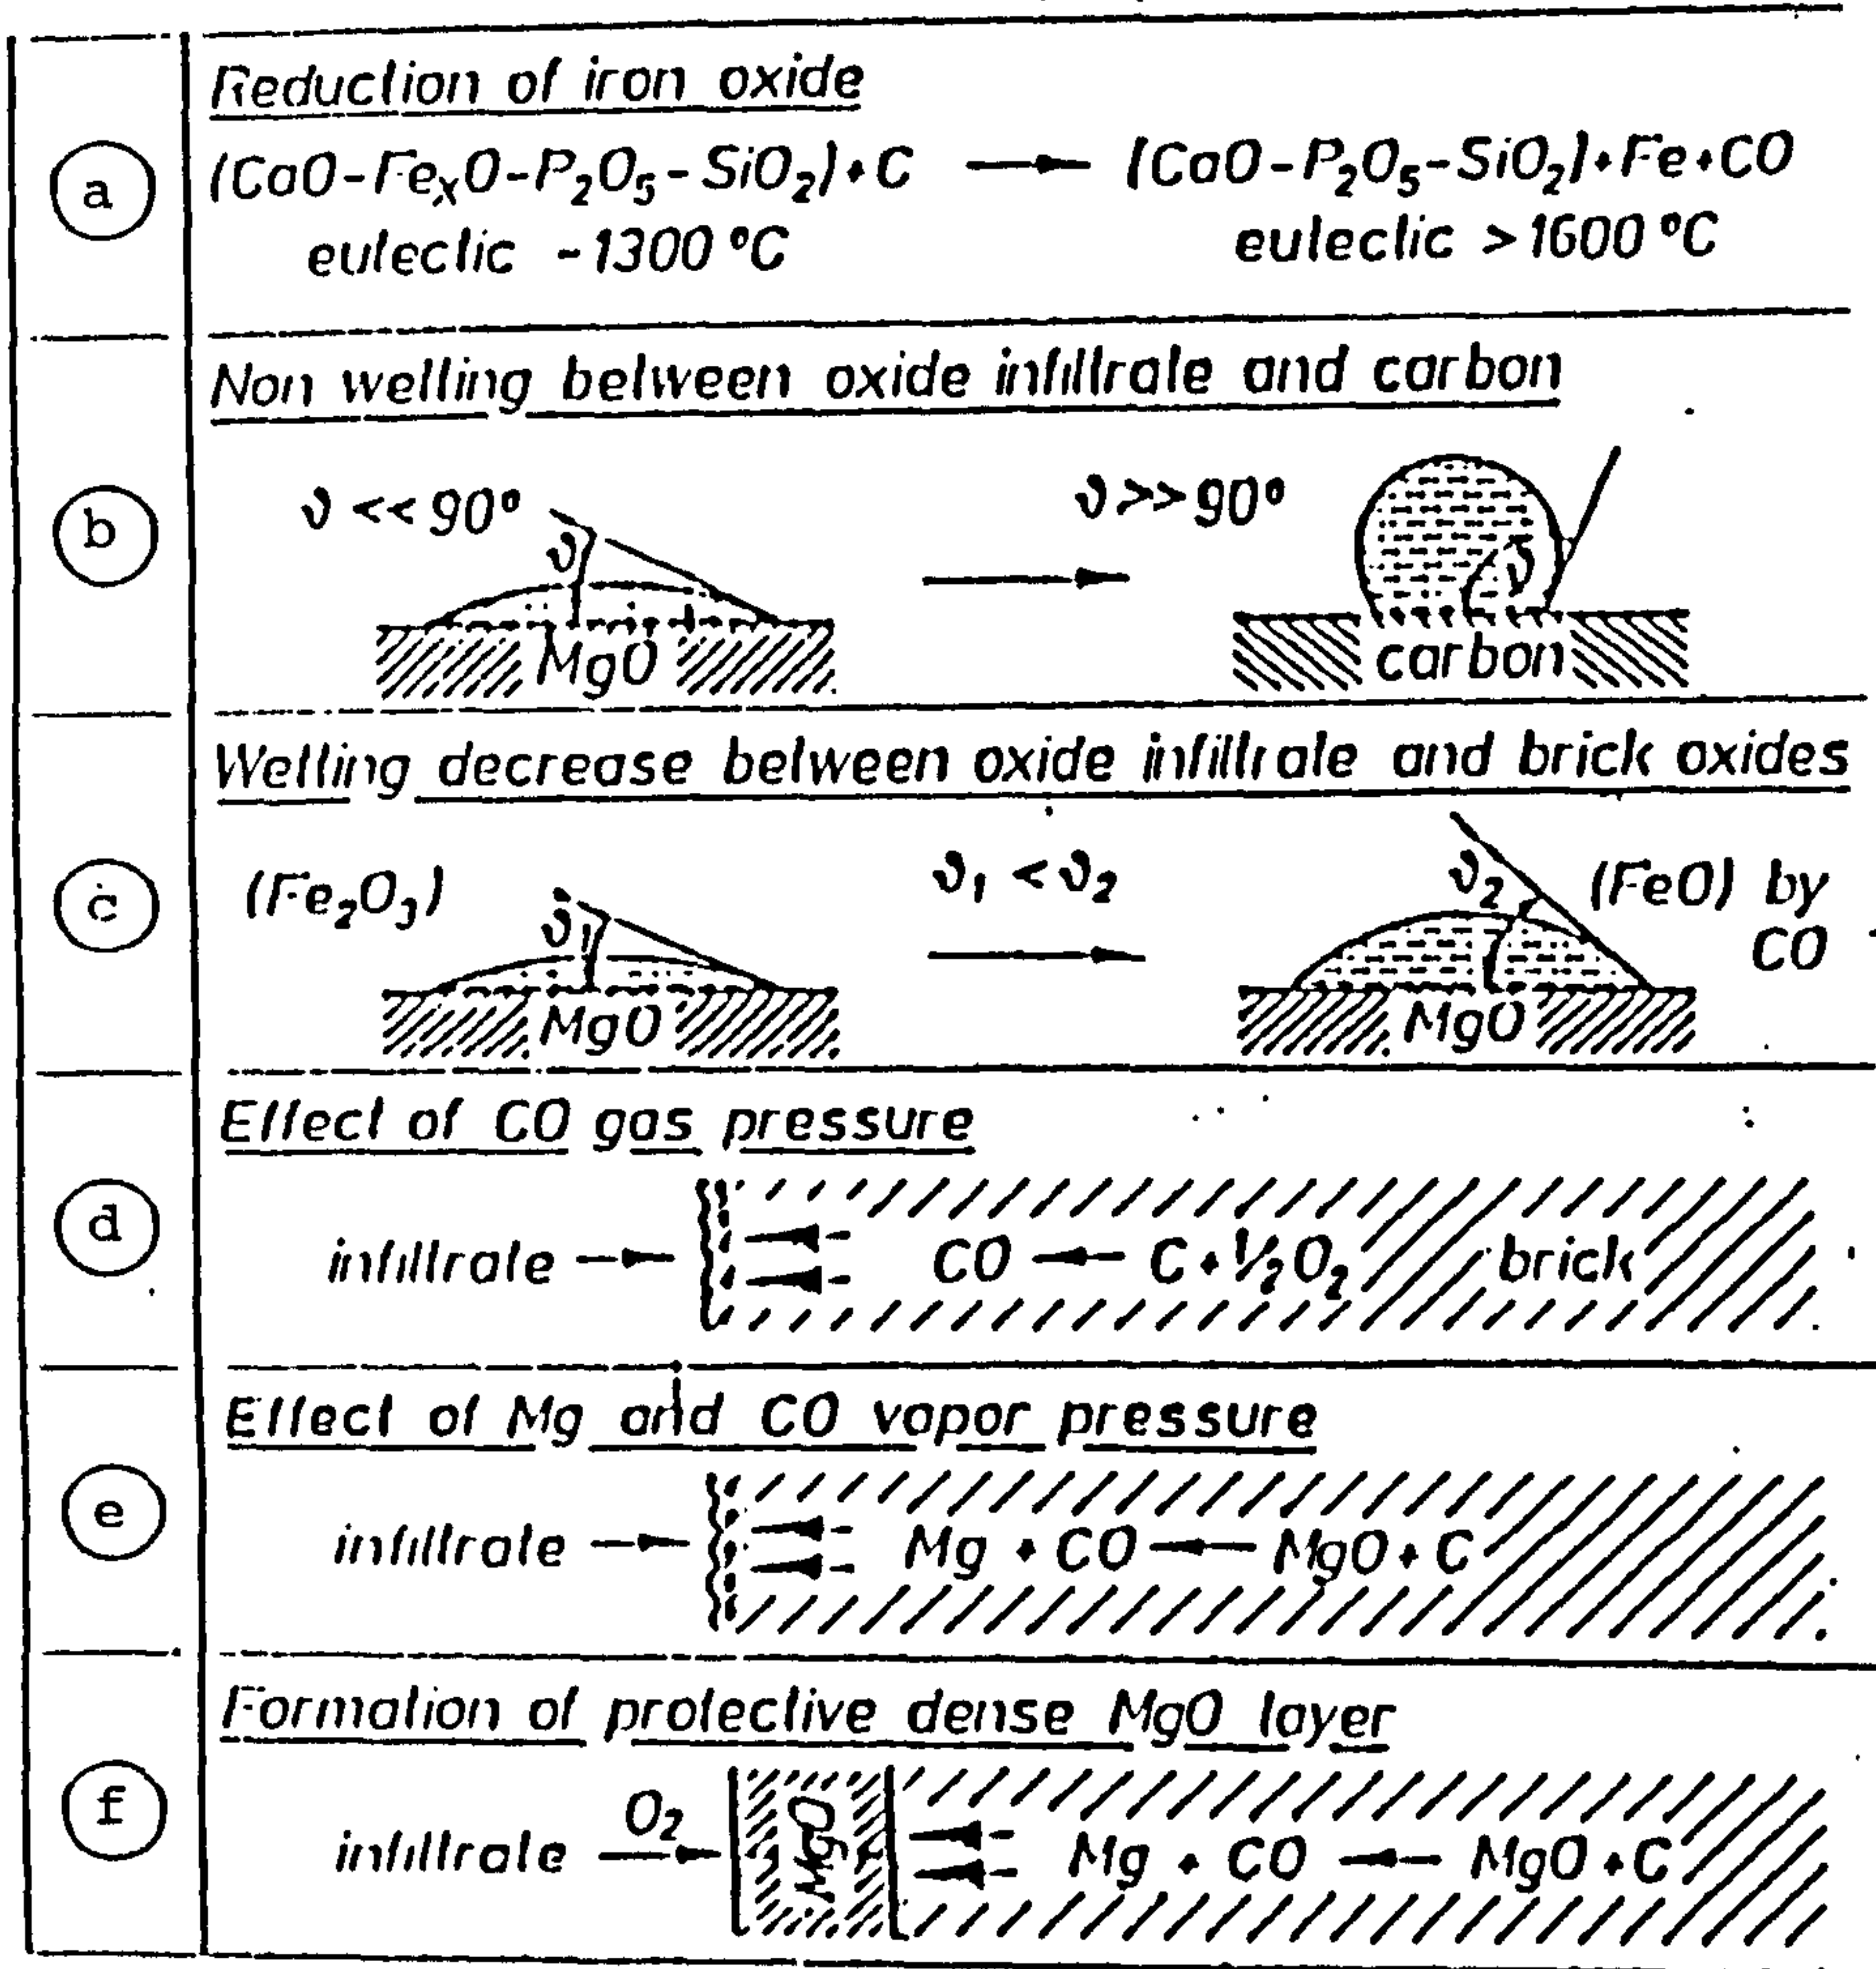 a
Reduction of iron oxide
(CaO-FeₓO-P₂O₅-SiO₂)+C → (CaO-P₂O₅-SiO₂)+Fe+CO
eutectic ~1300 °C eutectic >1600 °C
b
Non wetting between oxide infiltrate and carbon
ϑ << 90° ϑ >> 90°
ϑ ϑ
MgO carbon
c
Wetting decrease between oxide infiltrate and brick oxides
(Fe₂O₃) ϑ₁ < ϑ₂ (FeO) by
ϑ₁ ϑ₂ CO
MgO MgO
d
Effect of CO gas pressure
infiltrate → CO ← C+½O₂ brick
e
Effect of Mg and CO vapor pressure
infiltrate → Mg + CO ← MgO+C
f
Formation of protective dense MgO layer
infiltrate O₂ → MgO Mg + CO ← MgO+C